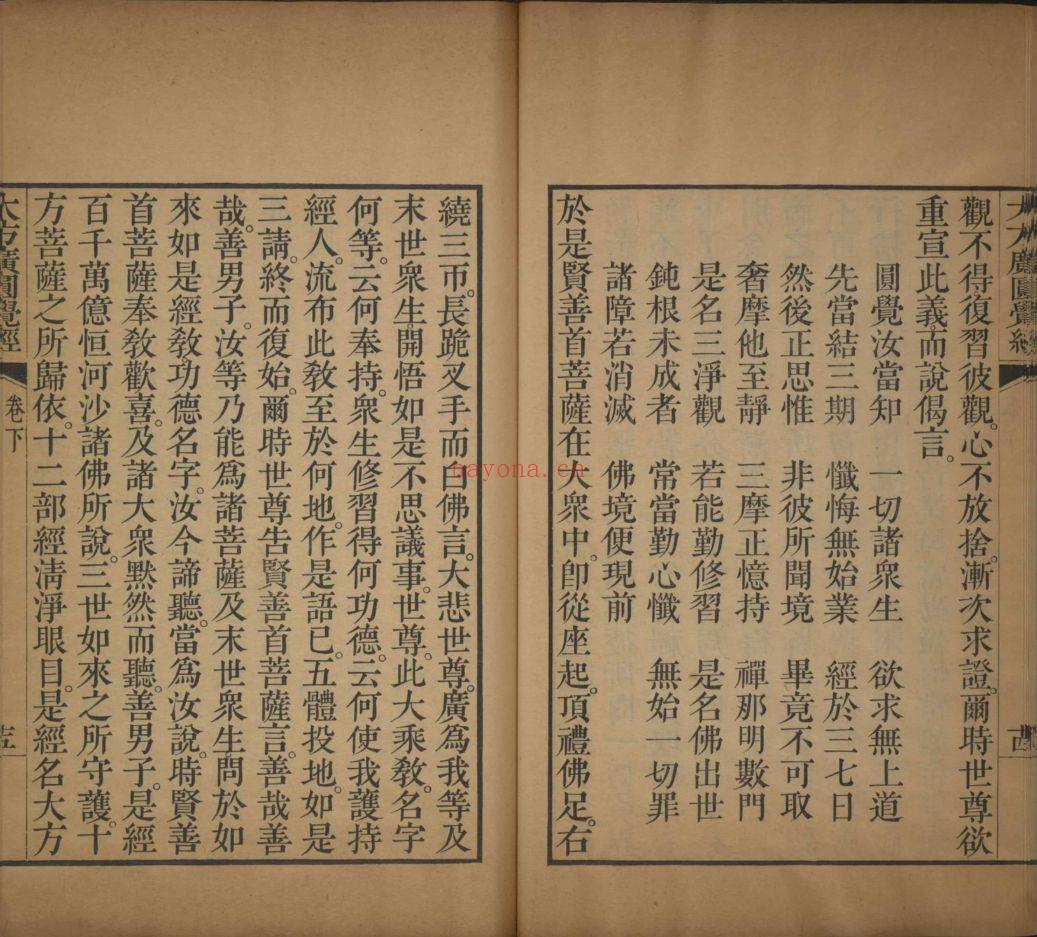 觀不得復習彼觀。心不放捨。漸次求證。爾時世尊欲
重宣此義。而說偈言。
圓覺汝當知　一切諸衆生　欲求無上道
先當結三期　懺悔無始業　經於三七日
然後正思惟　非彼所聞境　畢竟不可取
奢摩他至靜　三摩正憶持　禪那明數門
是名三淨觀　若能勤修習　是名佛出世
鈍根未成者　常當勤心懺　無始一切罪
諸障若消滅　佛境便現前
於是賢善首菩薩在大衆中。卽從座起。頂禮佛足。右
繞三帀。長跪叉手而白佛言。大悲世尊。廣爲我等及
末世衆生。開悟如是不思議事。世尊。此大乘敎。名字
何等。云何奉持。衆生修習得何功德。云何使我護持
經人。流布此敎至於何地。作是語已。五體投地。如是
三請。終而復始。爾時世尊吿賢善首菩薩言。善哉善
哉。善男子。汝等乃能爲諸菩薩及末世衆生。問於如
來如是經敎。功德名字。汝今諦聽。當爲汝說。時賢善
首菩薩奉敎歡喜。及諸大衆默然而聽。善男子。是經
百千萬億恒河沙諸佛所說。三世如來之所守護。十
方菩薩之所歸依。十二部經淸淨眼目。是經名大方
大方廣圓覺經
卷下
nayona.cn